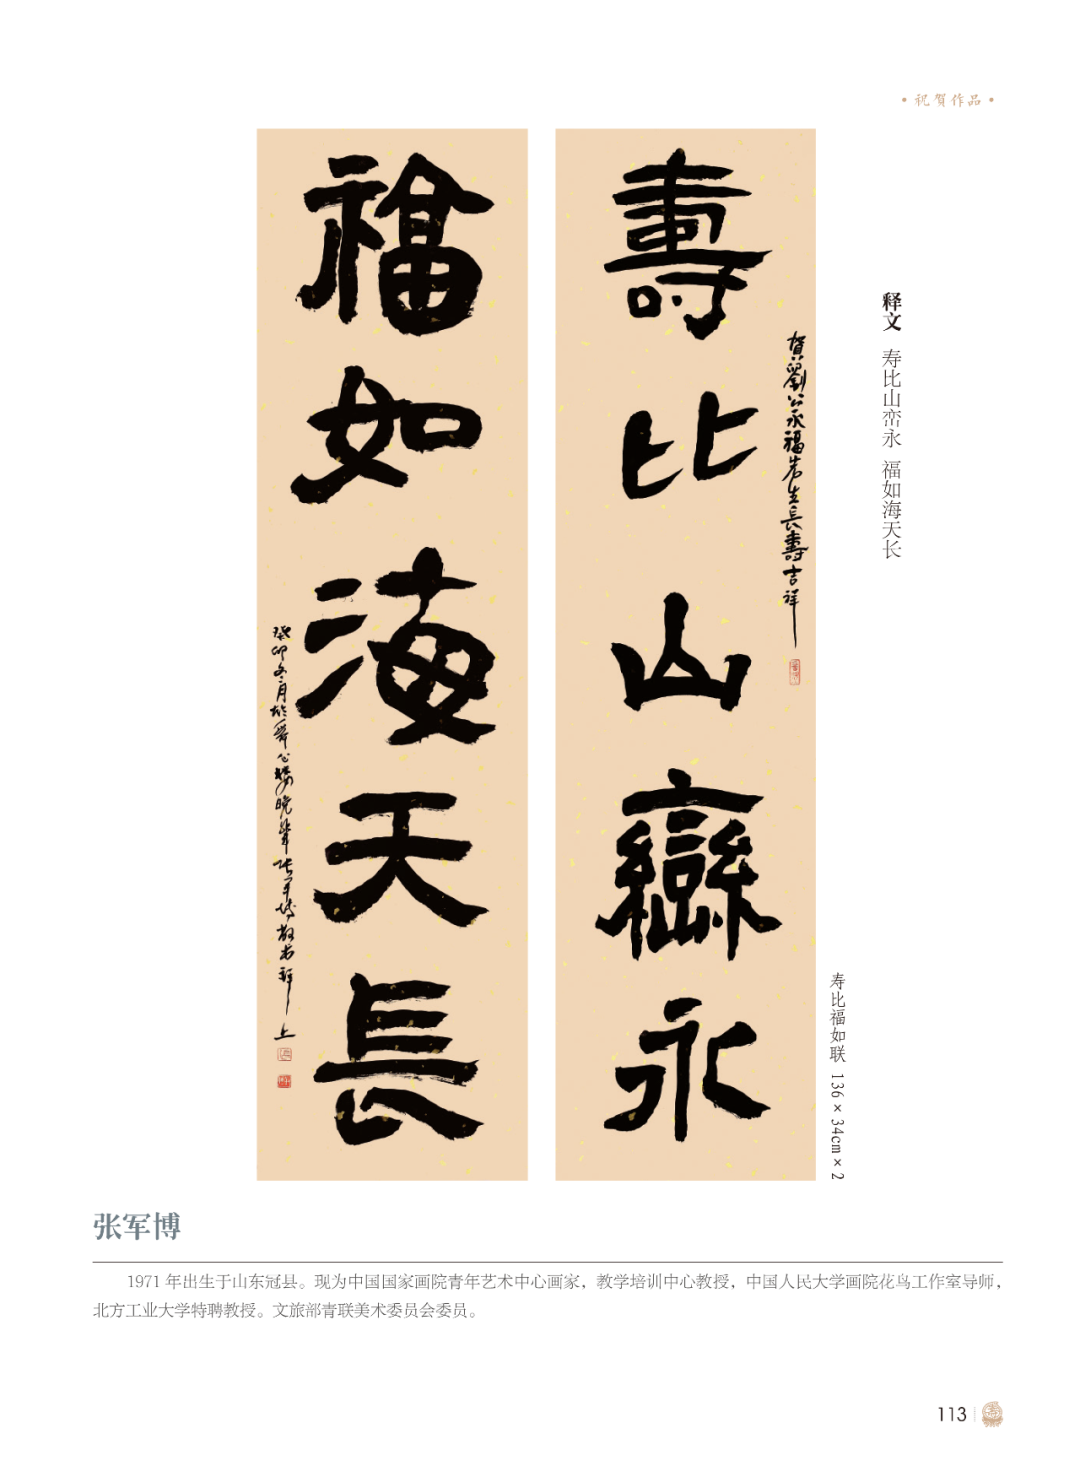 ·祝賀作品·
壽比山巒永
賀劉公永福先生長壽吉祥
福如海天長
癸卯冬月於舜公樓晚輩張軍博敬書祥上
释文 寿比山峦永 福如海天长
寿比福如联 136×34cm×2
张军博
1971年出生于山东冠县。现为中国国家画院青年艺术中心画家，教学培训中心教授，中国人民大学画院花鸟工作室导师，
北方工业大学特聘教授。文旅部青联美术委员会委员。
113